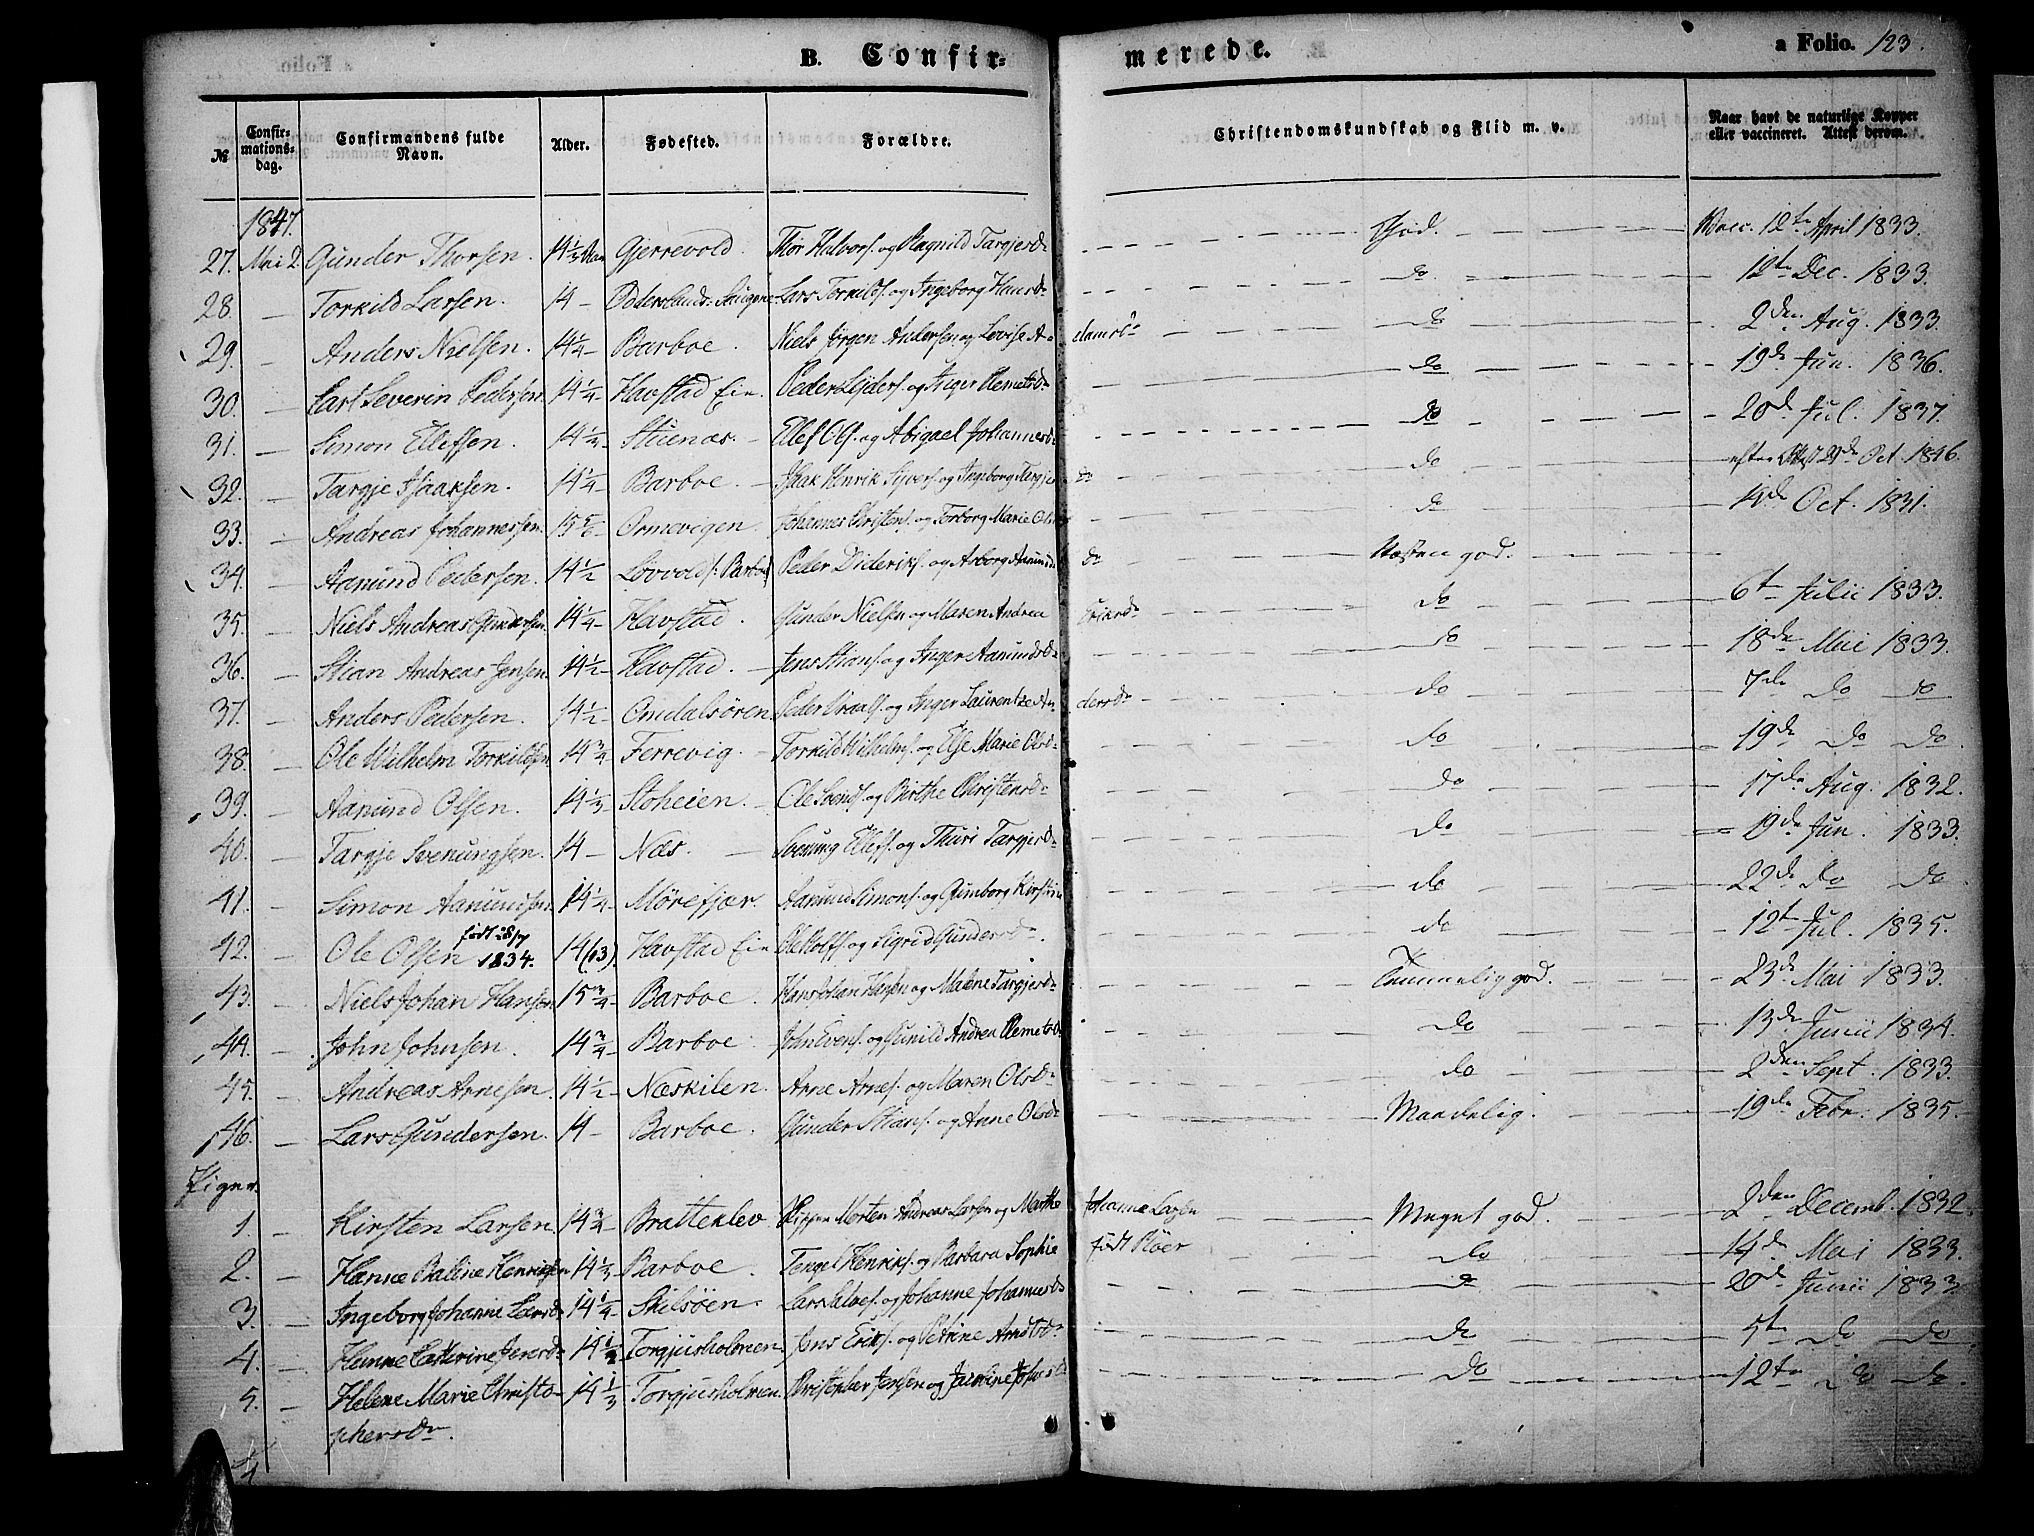 B. Confir= merede. a Folio. 123.
№ Confir=mations=dag. Confirmandens fulde Navn. Alder. Fødested. Forældre. Christendomskundskab og Flid m. v. Naar havt de naturlige Kopper eller vaccineret. Attest derom.
1847.
27. Mai 2. Gunder Thorsen. 14 1/3 Gjerrevold. Thor Halvors. og Ragnild Targjersd. God. Vacc. 12te April 1833.
28. — Torkild Larsen. 14 — Lars Torkilds. og Ingeborg Hansd. do 12te Dec. 1833.
29. — Anders Nielsen. 14 1/4 — Barboe. Niels Jørgen Andersen og Lovise Adamsd. do 2den Aug. 1833.
30. — Carl Severin Pedersen 14 1/4 — Havstad Eie. Peder og Inger Clemetsd. do 19de Jun. 1836.
31. — Simon Ellefsen. 14 1/2 — Stuenæs. Ellef Ols. og Abigael Johannesd. do 20de Jul. 1837.
32. — Targje Isaaksen. 14 1/4 — Barboe. Isaak Henrik Syvers. og Ingeborg Targjesd. do efter Attest Oct. 1846.
33. — Andreas Johannessen. 15 5/6 — Ormevigen. Johannes Christens. og Torborg Marie Olsd. do Oct. 1831.
34. — Aanund Pedersen. 14 1/2 — Løvvold (Barboe) Peder Dideriks. og Asborg Aanundsd. Næsten god.
35. — Niels Andreas Gundersen. 14 1/4 — Havstad. Gunder Nielsen og Maren Andrea do 6te Julii 1833.
36. — Stian Andreas Jensen. 14 1/2 — Havstad. Jens Stians. og Inger Aanundsd. do 18de Mai 1833.
37. — Anders Pedersen. 14 1/2 — Omdalsøren. Peder og Inger Laurentze Andersd. do 7de do do
38. — Ole Wilhelm Torkildsen 14 3/4 — Ferrevig. Torkild Wilhelms. og Else Marie Olsd. do 19de do do.
39. — Aanund Olsen. 14 1/3 — Stoheien. Ole Svends. og Birthe Christensd. do 17de Aug. 1832.
40. — Targje Svenungsen. 14 — Næs. Svenung Ellefs. og Thuri Targjersd. do 19de Jun. 1833.
41. — Simon Aanundsen. 14 1/4 — Mørefjær. Aanund Simons. og Gunborg Kirstine do 22de do do
42. — Ole Olsen født 1834. 14 (13). Havstad Eie Ole Rolfs. og Sigrid Gundersd. do 12te Jul. 1835.
43. — Niels Johan Hansen 15 3/4 — Barboe. Hans Johan Hansen og Malene Targjersd. Temmelig god. 23de Mai 1833.
44. — John Johnsen. 14 3/4 — Barboe. John Evens. og Gunild Andrea Clemetsd. do 13de Junii 1834.
45. — Andreas Arnesen. 14 1/2 — Næskilen. Arne Arnes. og Maren Olsd. do 2den Sept. 1833.
46. — Lars Gundersen. 14 — Barboe. Gunder Stians. og Anne Olsd. Maadelig. 19de Febr. 1835.
Piger.
1. — Kirsten Larsen. 14 3/4 — Bratteklev Skipper Morten Andreas Larsen og Marthe Johanne Larsen født Kløer Meget god. 2den Decemb. 1832.
2. — Hanne Baline Henriksen 14 1/3 Barboe. Tengel Henriks. og Barbara Sophie do 14de Mai 1833.
3. — Ingeborg Johanne Larsd. 14 1/4 — Skilsøen. Lars Halvs. og Johanne Johannesd. do 20de Junii 1833.
4. — Hanne Cathrine Jensd. 14 1/2 Torgjusholmen Jens Eriks. og Petrine Arntsd. do 5te do do
5. — Helene Marie Christophersd. 14 1/3 Torgjusholmen. Christopher Jensen og Jacobine do 12te do do.